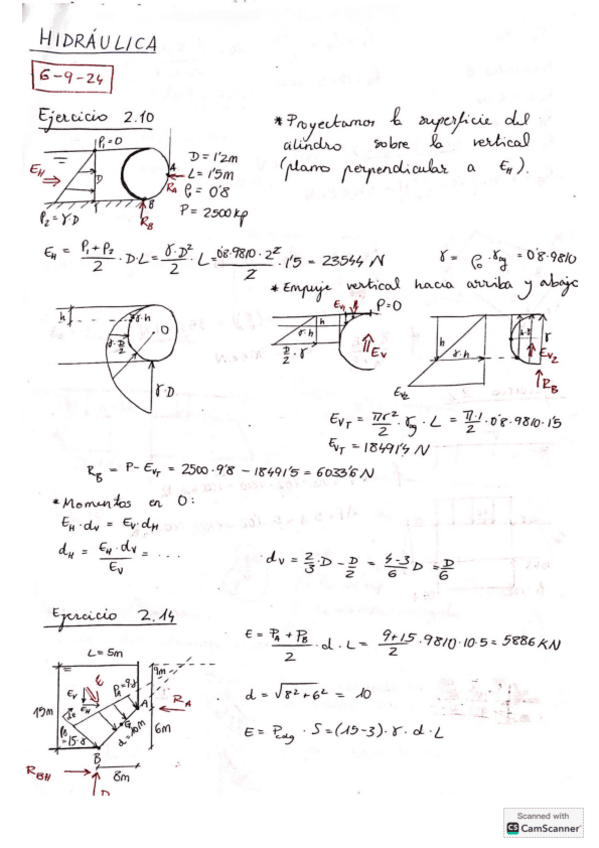 HIDRÁULICA
6-9-24
Ejercicio 2.10
P₁=0
E_H
D
A
R_A
B
R_B
P₂ = γD
D = 1'2m
L = 1'5m
ρ = 0'8
P = 2500 kp
* Proyectamos la superficie del
cilindro sobre la vertical
(plano perpendicular a E_H).
E_H = (P₁+P₂)/2 · D·L = (γ·D²)/2 · L = (0'8·9810·2²)/2 · 1'5 = 23544 N
γ = ρ₀·γ_g = 0'8·9810
* Empuje vertical hacia arriba y abajo
h
γ·h
O
γ·D/2
γ·D
E_V
P=0
h
γ·h
D/2·γ
E_V
h
γ·h
r
E_V2
R_B
E_V2
E_VT = πr²/2 · γ_g · L = π·1/2 · 0'8·9810·1'5
E_VT = 18491'4 N
R_B = P-E_VT = 2500·9'8 - 18491'5 = 6033'6 N
* Momentos en O:
E_H·d_V = E_V·d_H
d_H = (E_H·d_V)/E_V = ...
d_V = 2/3·D - D/2 = (4-3)/6 D = D/6
Ejercicio 2.14
L = 5m
E
9m
P_A=9γ
E_V
E_H
A
R_A
15m
G
P_B=15·γ
d=10m
6m
B
R_BH
8m
E = (P_A+P_B)/2 · d·L = (9+15)/2 · 9810·10·5 = 5886 KN
d = √(8²+6²) = 10
E = P_cdg · S = (15-3)·γ·d·L
Scanned with
CS CamScanner